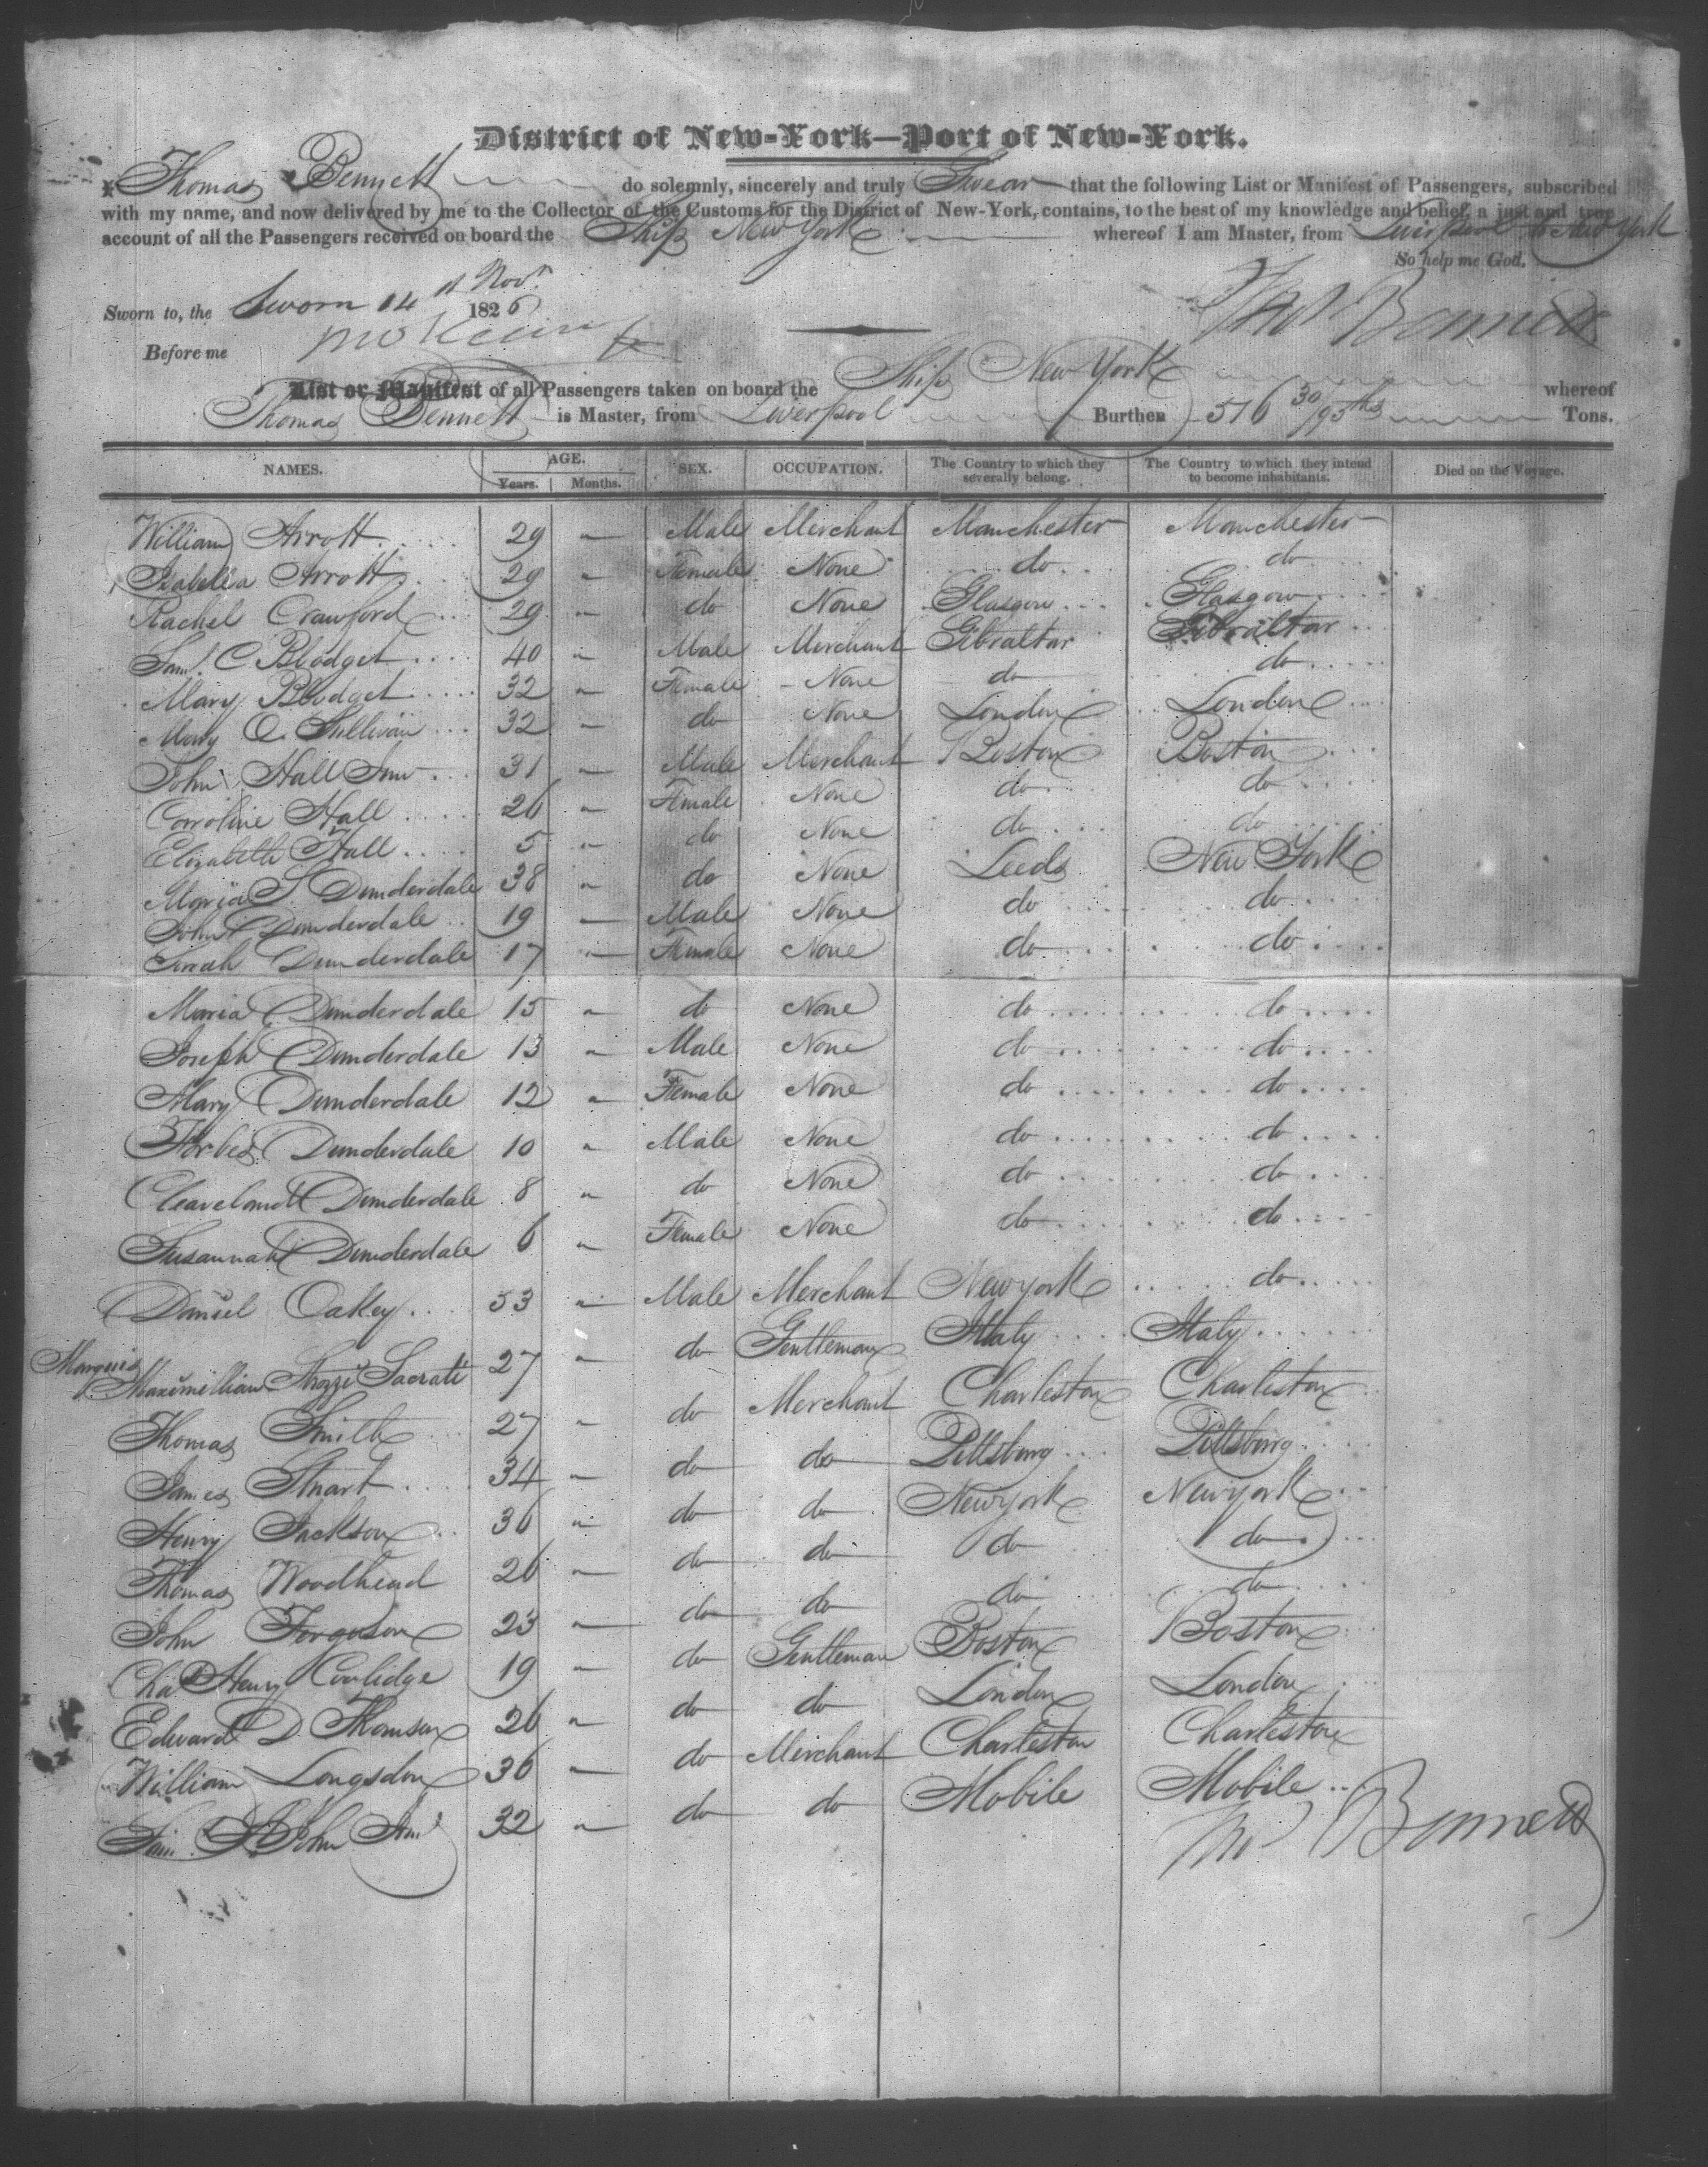 District of New-York—Port of New-York.
I, Thomas Bennett do solemnly, sincerely and truly Swear that the following List or Manifest of Passengers, subscribed
with my name, and now delivered by me to the Collector of the Customs for the District of New-York, contains, to the best of my knowledge and belief, a just and true
account of all the Passengers received on board the Ship New York whereof I am Master, from Liverpool to New York
So help me God.
Sworn to, the Sworn 14th Novr. 1826
Thos Bennett
Before me
List or Manifest of all Passengers taken on board the Ship New York whereof
Thomas Bennett is Master, from Liverpool Burthen 516 30/95ths Tons.
NAMES. AGE. SEX. OCCUPATION. The Country to which they severally belong. The Country to which they intend to become inhabitants. Died on the Voyage.
Years. Months.
William Arrott 29 " Male Merchant Manchester Manchester
Isabella Arrott 29 " Female None do do
Rachel Crawford 29 " do None Glasgow Glasgow
Saml. C Blodget 40 " Male Merchant Gibraltar Gibraltar
Mary Blodget 32 " Female None do do
Mary O. Sullivan 32 " do None London London
John Hall Junr 31 " Male Merchant Boston Boston
Caroline Hall 26 " Female None do do
Elizabeth Hall 5 " do None do do
Maria S Dunderdale 38 " do None Leeds New York
John Dunderdale 19 " Male None do do
Sarah Dunderdale 17 " Female None do do
Maria Dunderdale 15 " do None do do
Joseph Dunderdale 13 " Male None do do
Mary Dunderdale 12 " Female None do do
Forbes Dunderdale 10 " Male None do do
Cleaveland Dunderdale 8 " do None do do
Susannah Dunderdale 6 " Female None do do
Daniel Oakey 33 " Male Merchant New york do
Marquis Maximillian Strozzi Sacrati 27 " do Gentleman Italy Italy
Thomas Smith 27 " do Merchant Charleston Charleston
James Stuart 34 " do do Pittsburg Pittsburg
Henry Jackson 36 " do do New york New york
Thomas Woodhead 26 " do do do do
John Ferguson 23 " do do do do
Chas Henry Coolidge 19 " do Gentleman Boston Boston
Edward D. Thomson 26 " do do London London
William Longsdon 36 " do Merchant Charleston Charleston
Sam. St John Junr 32 " do do Mobile Mobile
Thos Bennett